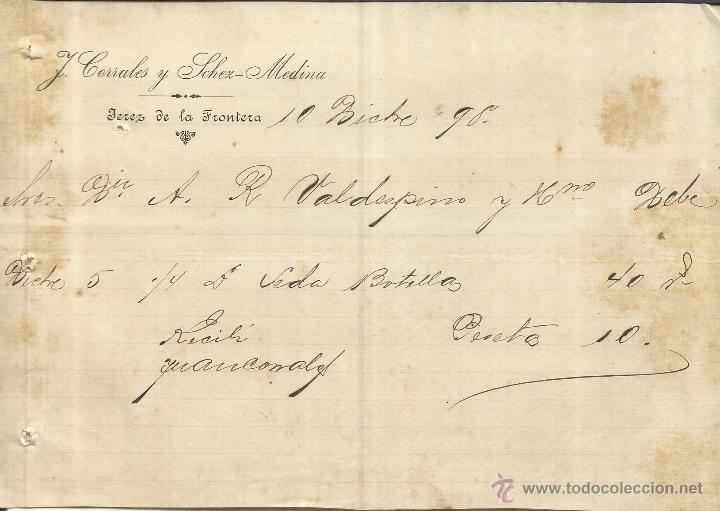 J. Corrales y Schez-Medina
Jerez de la Frontera 10 Dicbre 98.
Sres. Dn A. R Valdespino y Hmo Debe
Dicbre 5 1/4 Dª Seda Botellas 40 rs
Recibí Peseta 10.
Juan Corrales
www.todocoleccion.net